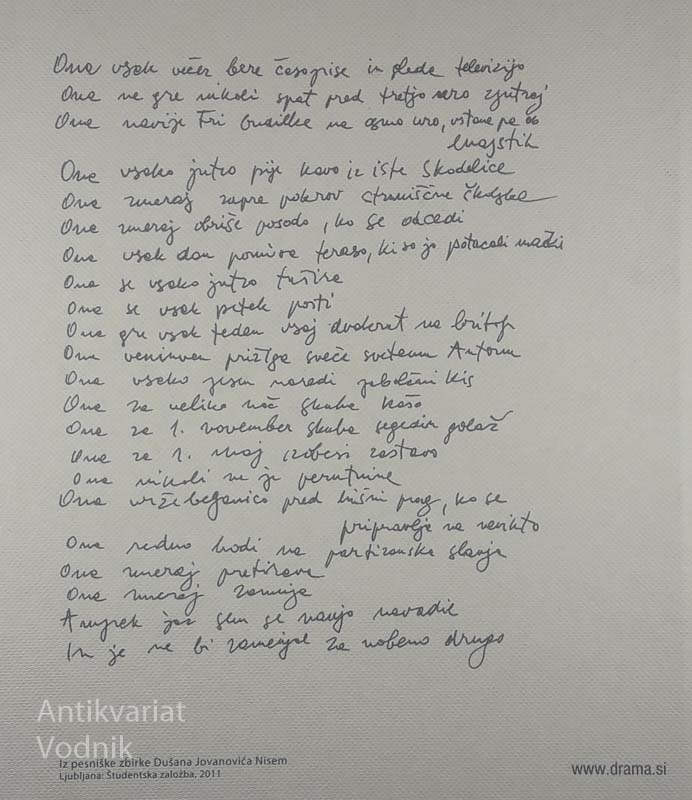 Ona vsak večer bere časopise in gleda televizijo
Ona ne gre nikoli spat pred tretjo uro zjutraj
Ona navije tri budilke na osmo uro, vstane pa ob
enajstih
Ona vsako jutro pije kavo iz iste skodelice
Ona zmeraj zapre pokrov straniščne školjke
Ona zmeraj obriše posodo, ko se odcedi
Ona vsak dan pomiva teraso, ki so jo potacali mački
Ona se vsako jutro tušira
Ona se vsak petek posti
Ona gre vsak teden vsaj dvakrat na britof
Ona prižiga sveče svetemu Antonu
Ona vsako jesen naredi jabolčni kis
Ona za veliko noč skuha kašo
Ona za 1. november skuha segedin golaž
Ona za 1. maj izobesi zastavo
Ona nikoli ne je perutnine
Ona vrže beljanico pred hišni prag, ko se
pripravlja na nevihto
Ona redno hodi na partizanska slavja
Ona zmeraj pretirava
Ona zmeraj zamuja
Ampak jaz sem se nanjo navadil
In je ne bi zamenjal za nobeno drugo
Antikvariat
Vodnik
Iz pesniške zbirke Dušana Jovanovića Nisem
Ljubljana: Študentska založba, 2011
www.drama.si